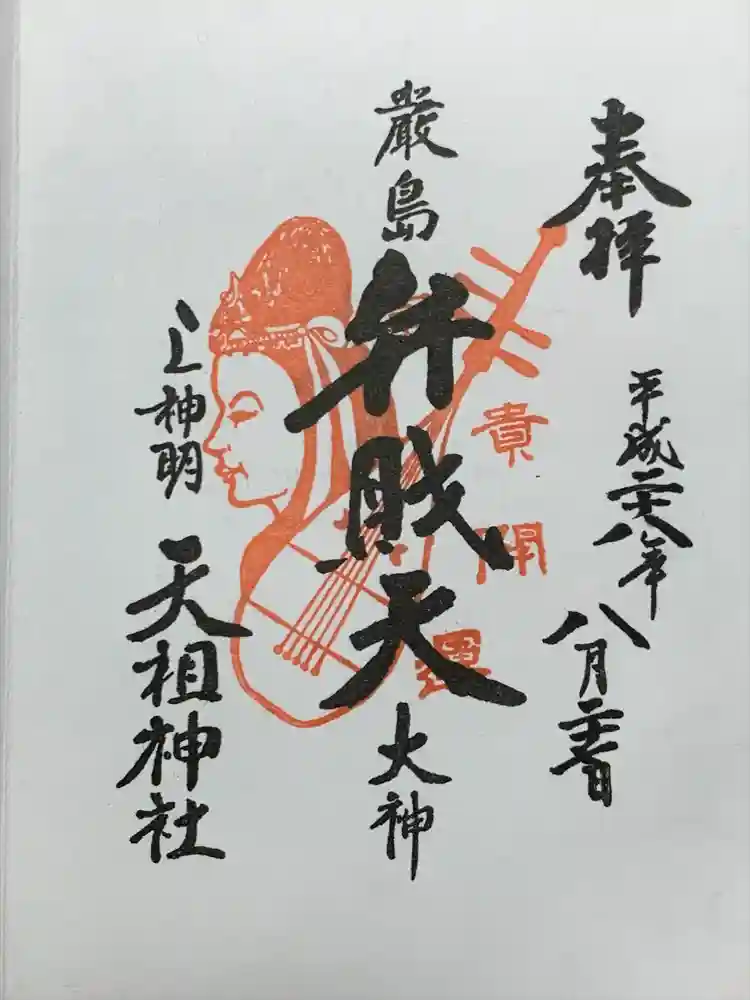 奉拝
平成二十八年
八月
厳島
弁戝天
大神
貴
開
運
上神明
天祖神社